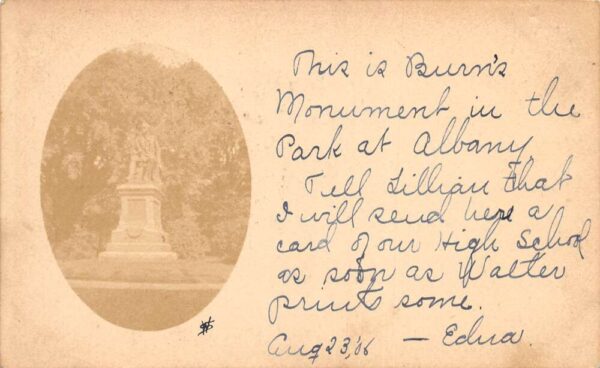 This is Burn's
Monument in the
Park at Albany.
Tell Lillian that
I will send here a
card of our High School
as soon as Walter
prints some.
Aug 23, '06 — Edna.